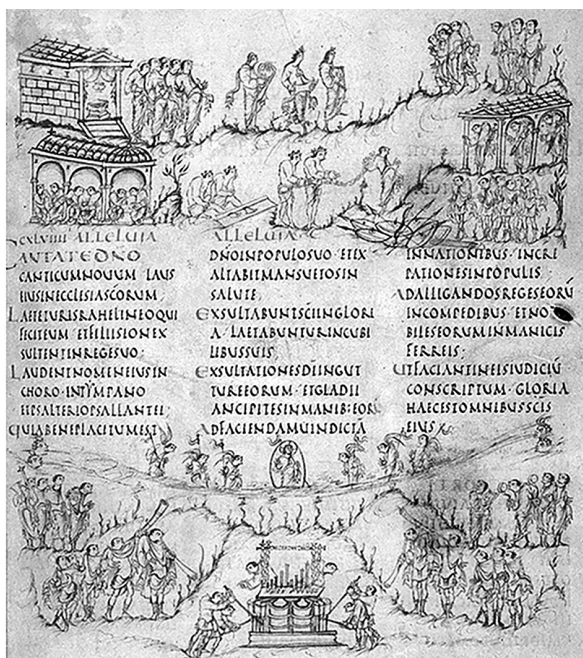 CXLVIIII ALLELUIA
CANTATE DNO
CANTICUM NOUUM LAUS
EIUS IN ECCLESIA SCORUM;
LAETETUR ISRAHEL IN EO QUI
FECIT EUM ET FILII SION EX
SULTENT IN REGE SUO;
LAUDENT NOMEN EIUS IN
CHORO · IN TYMPANO
ET PSALTERIO PSALLANT EI;
QUIA BENEPLACITUM EST
ALLELUIA
DNO IN POPULO SUO · ET EX
ALTABIT MANSUETOS IN
SALUTE
EXSULTABUNT SCI IN GLORI
A · LAETABUNTUR IN CUBI
LIBUS SUIS;
EXSULTATIONES DI IN GUT
TURE EORUM · ET GLADII
ANCIPITES IN MANIB: EORU
AD FACIENDAM UINDICTĀ
IN NATIONIBUS · INCRE
PATIONES IN POPULIS;
AD ALLIGANDOS REGES EORŪ
IN COMPEDIBUS · ET NO
BILES EORUM IN MANICIS
FERREIS;
UT FACIANT IN EIS IUDICIŪ
CONSCRIPTUM · GLORIA
HAEC EST OMNIBUS SCIS
EIUS